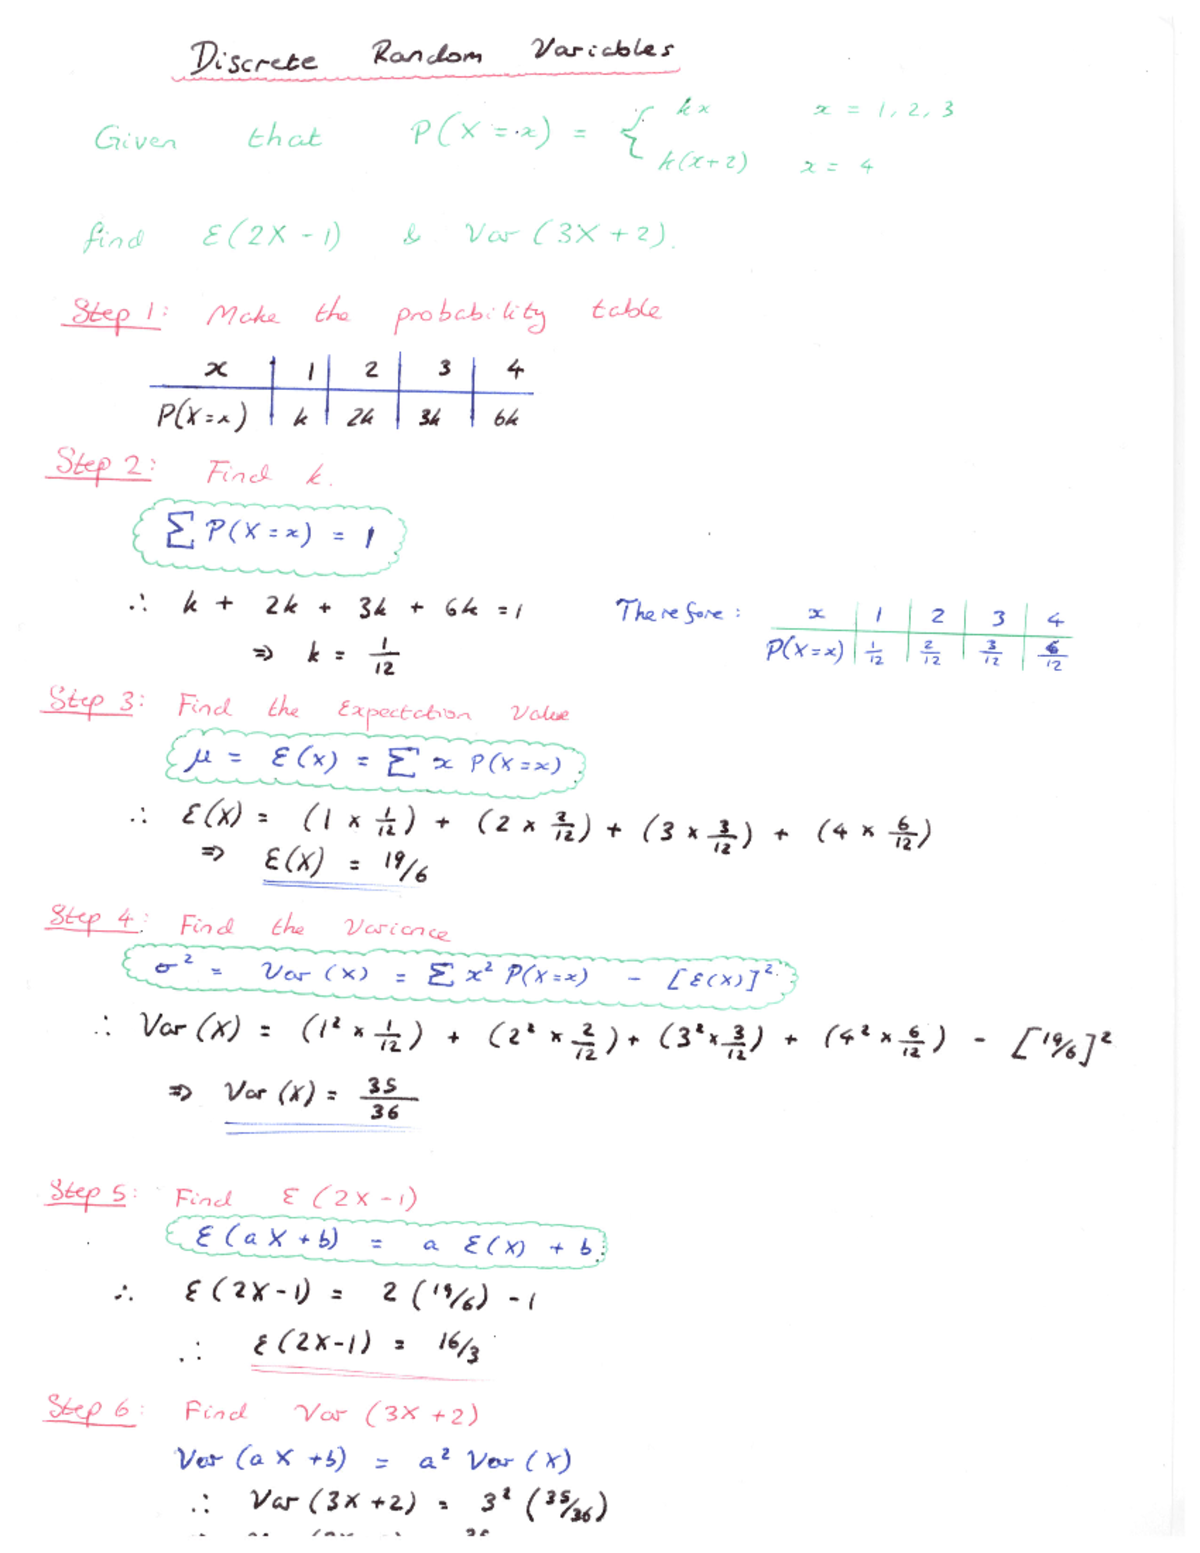 Discrete Random Variables
Given that P(X = x) = { kx x = 1, 2, 3
k(x+2) x = 4
find E(2X - 1) & Var (3X + 2).
Step 1: Make the probability table
x | 1 | 2 | 3 | 4
P(X=x) | k | 2k | 3k | 6k
Step 2: Find k.
∑ P(X = x) = 1
∴ k + 2k + 3k + 6k = 1
⇒ k = 1/12
Therefore: x | 1 | 2 | 3 | 4
P(X=x) | 1/12 | 2/12 | 3/12 | 6/12
Step 3: Find the Expectation Value
μ = E(X) = ∑ x P(X=x)
∴ E(X) = (1 × 1/12) + (2 × 2/12) + (3 × 3/12) + (4 × 6/12)
⇒ E(X) = 19/6
Step 4: Find the Variance
σ² = Var (X) = ∑ x² P(X=x) - [E(X)]²
∴ Var (X) = (1² × 1/12) + (2² × 2/12) + (3² × 3/12) + (4² × 6/12) - [19/6]²
⇒ Var (X) = 35/36
Step 5: Find E (2X - 1)
E (aX + b) = a E(X) + b
∴ E (2X - 1) = 2 (19/6) - 1
∴ E (2X-1) = 16/3
Step 6: Find Var (3X + 2)
Var (aX + b) = a² Var (X)
∴ Var (3X + 2) = 3² (35/36)